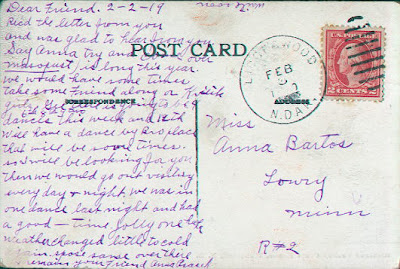 Dear Friend. 2-2-19
Rec'd the letter from you
and was glad to hear from you
Say Anna try and come over
masquet, is long this year.
we would have some times
take some friend along or
girls. Yes
dances this week and 12th
will have a dance by Bros place
that will be some times.
so I will be looking for you
Then we would go out visiting
every day & night. we was in
one dance last night and had
a good - time. jolly one
weather changed little to cold
over there
remains your Friend
POST CARD
CORRESPONDENCE
ADDRESS
FEB
N.DAK.
2 CENTS 2
Miss
Anna Bartos
Lowry
Minn
R#2